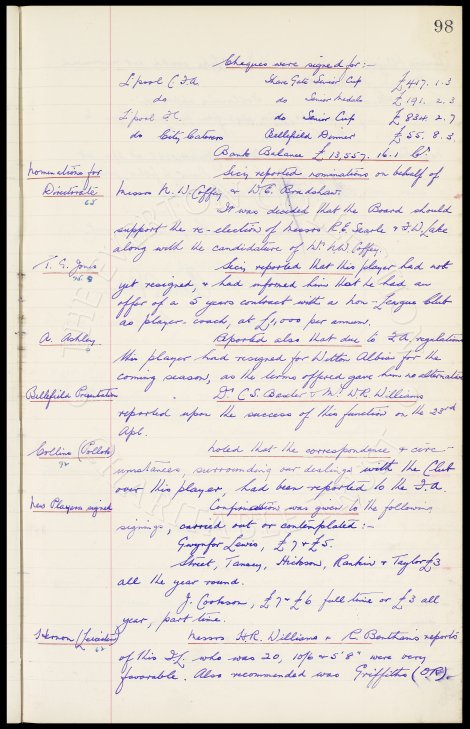 98
Cheques were signed for:-
L'pool C.F.A. Share Gate Senior Cup £417. 1. 3
do do Senior Medals £191. 2. 3
L'pool F.C. do Senior Cup £834. 2. 7
do City Caterers Bellefield Dinner £55. 8. 3
Bank Balance £13,557. 16. 1 Cr
Nominations for Secy reported nominations on behalf of
Directorate Messrs N. W. Coffey & W. C. Bradshaw.
65 It was decided that the Board should
support the re-election of Messrs R. E. Searle & F. D. Lake
along with the candidature of Mr. N.W. Coffey.
T. G. Jones Secy reported that this player had not
yet resigned, & had informed him that he had an
offer of a 5 years contract with a non-League Club
as player-coach, at £1,000 per annum.
A. Ashley Reported also that due to F.A. regulations
this player had resigned for Witton Albion for the
coming season, as the terms offered gave him no alternative
Bellefield Presentation Dr C. S. Baxter & Mr. W. R. Williams
reported upon the success of this function on the 23rd
Apl.
Collins (Pollok) Noted that the correspondence & circ-
92 umstances, surrounding our dealings with the Club
over this player, had been reported to the F.A.
New Players signed Confirmation was given to the following
signings, carried out or contemplated:-
Gwynfor Lewis, £7 & £5.
Street, Tansey, Hickson, Rankin & Taylor £3
all the year round.
J. Cookson, £7 & £6 full time or £3 all
year, part time.
(Leicester) Messrs H.R. Williams & R. reports
62 of this I.L. who was 20, 10/6 & 5'8" were very
favorable. Also recommended was Griffiths (OR).
THE EVERTON